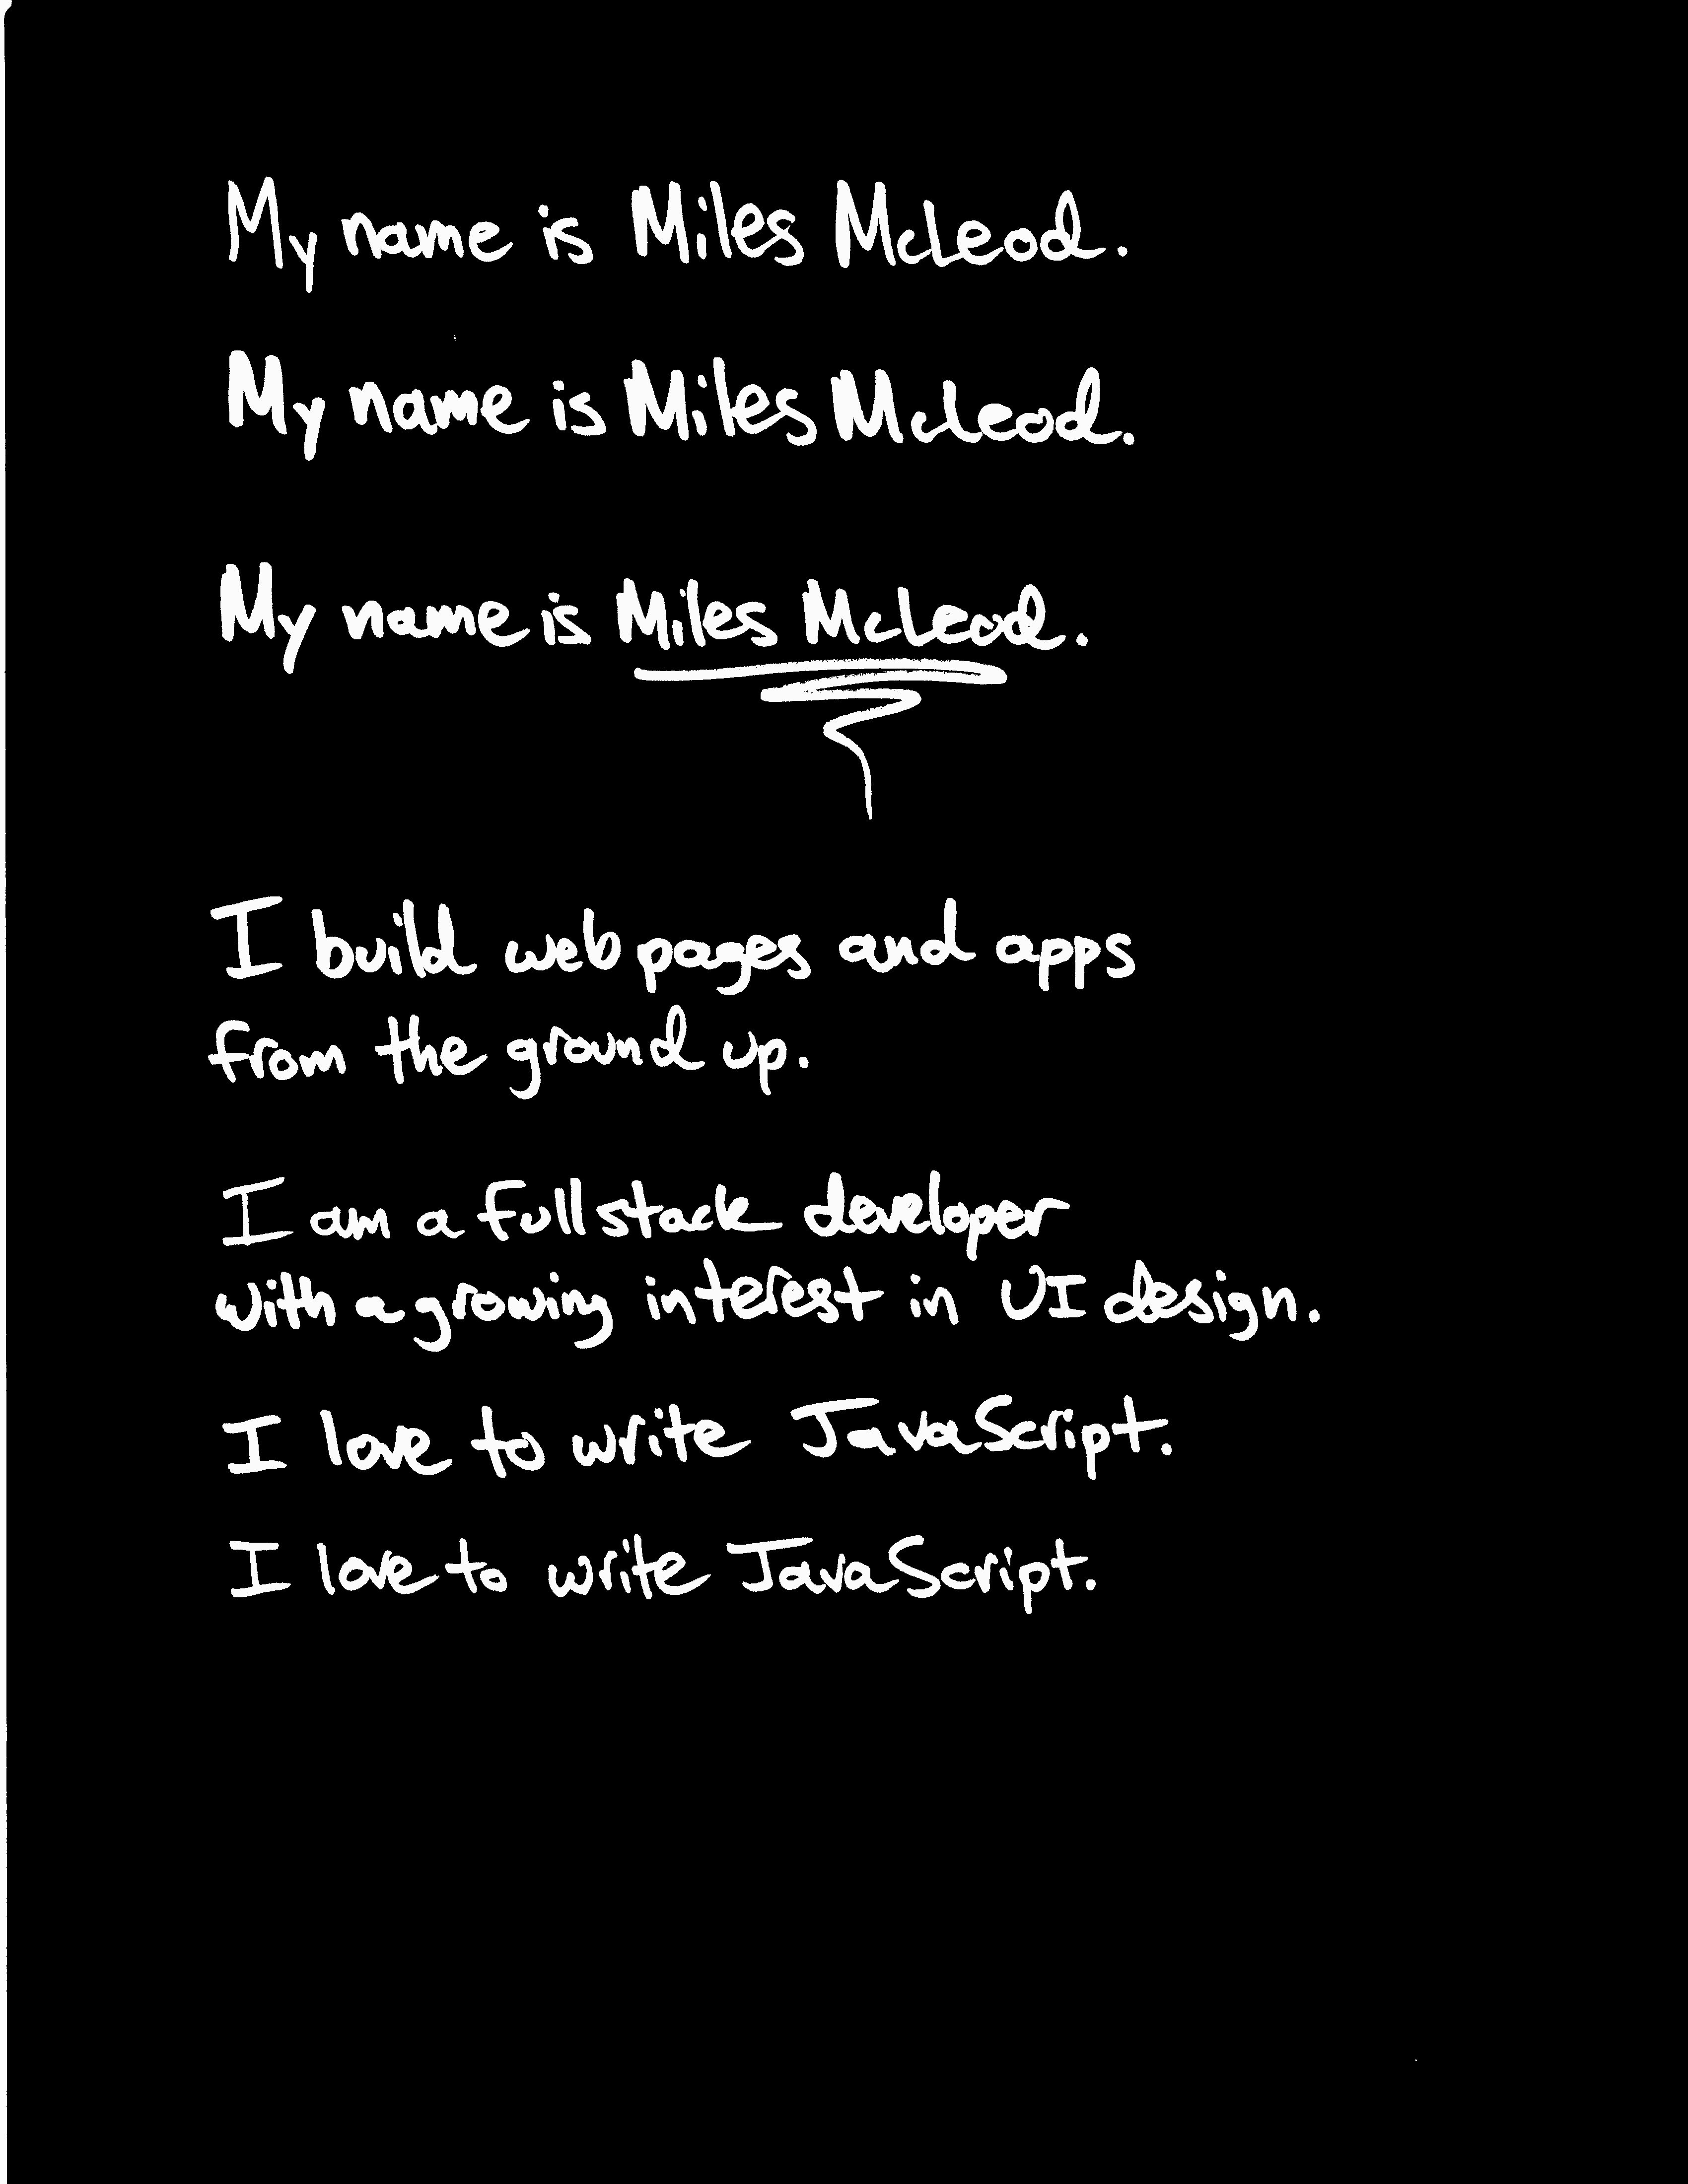 My name is Miles McLeod.
My name is Miles McLeod.
My name is Miles McLeod.
I build web pages and apps
from the ground up.
I am a full stack developer
with a growing interest in UI design.
I love to write JavaScript.
I love to write JavaScript.